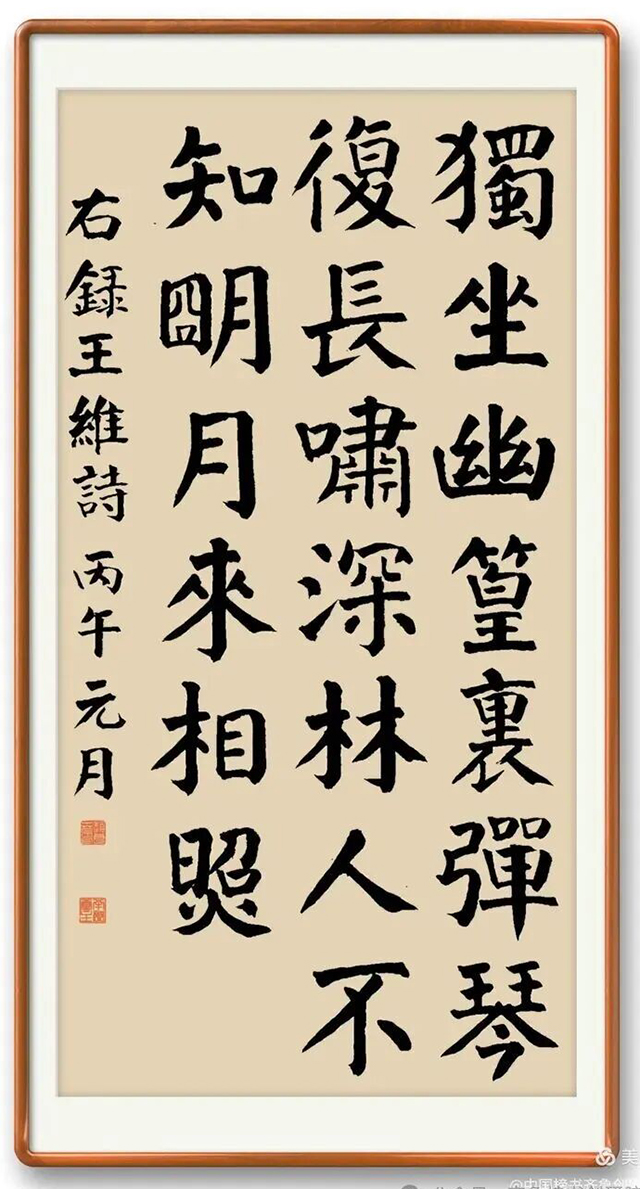 獨坐幽篁裏彈琴
復長嘯深林人不
知明月來相照
右録王維詩 丙午元月
美
@中国榜书齐鲁创